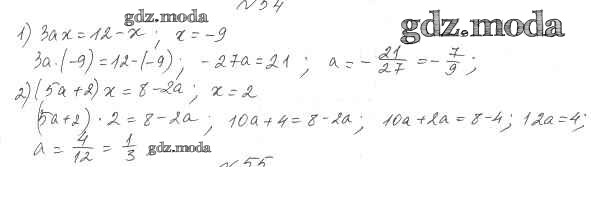 N 54
gdz.moda
gdz.moda
1) 3ax = 12 - x ; x = -9
3a·(-9) = 12 - (-9) ; -27a = 21 ; a = -21/27 = -7/9 ;
2) (5a+2) x = 8 - 2a ; x = 2
(5a+2)·2 = 8 - 2a ; 10a + 4 = 8 - 2a ; 10a + 2a = 8 - 4 ; 12a = 4 ;
a = 4/12 = 1/3 gdz.moda
N 55